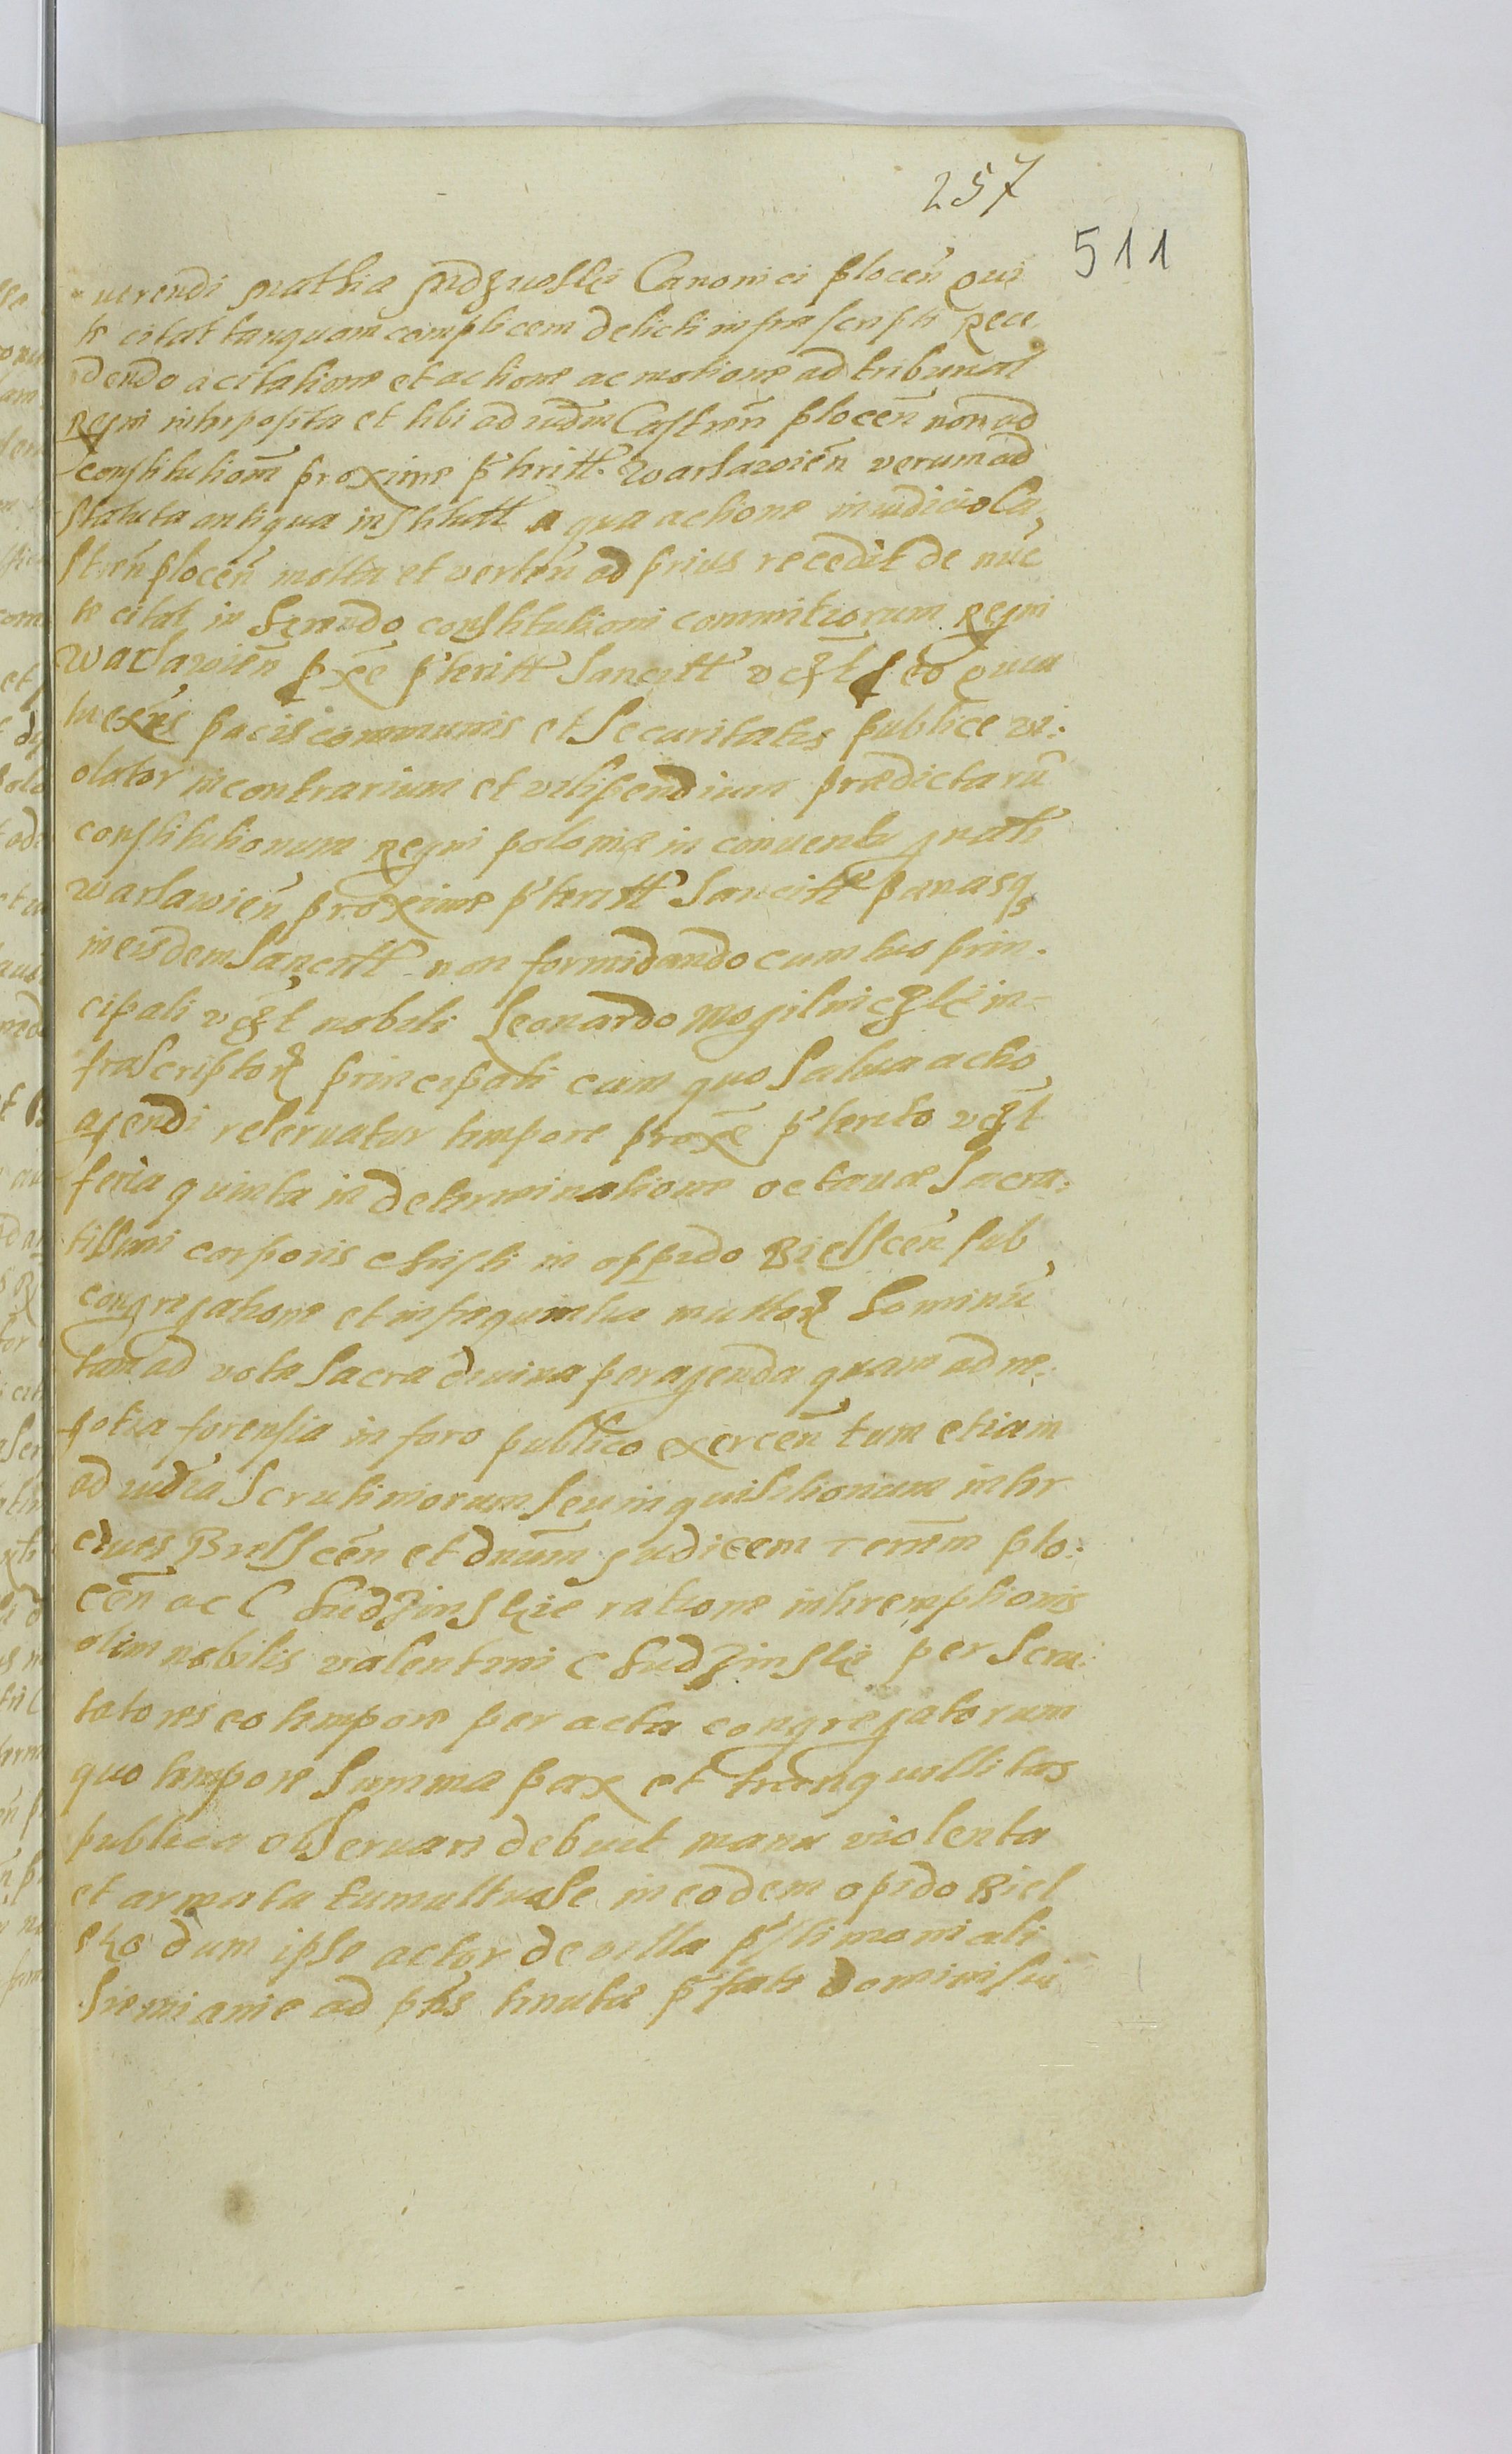 257
511
uerendi Mathia Canonici plocen̄ qui
te citat tanquam complicem delicti infra scripti Rece
dendo a citatione et actione ac motione ad tribunal
Regni interposita et tibi ad iudm Castren̄ plocen̄ non ad
constitutionem proxime p̄teritt. Warsavien̄ verum ad
statuta antiqua institutt a qua actione in iudicio Ca,
stren̄ plocen̄ mota et verten̄ ad prius recedit de nuc
te citat in constitutioni commitiorum Regni
Warsavien̄ pxe p̄teritt sancitt vczt eo quia
tu exns pacis communis et securitatis publice vi:
olator in contrarium et vilipendium prædictarū
constitutionum Regni poloniæ in conuentu gnali
warsawien̄ proxime p̄teritt sancitt pænasqз
in eisdem sancitt non formidando cum tuo prin.
cipali vczt nobili Leonardo in-
frascriptoꝝ principali cum quo salua actio
agendi reseruatur tempore proxe p̄terito vczt
feria quinta in determinatione octauæ sacra:
tissimi corporis christi in oppido Bielscen̄ sub
congregatione et multoꝝ hominū
tam ad vota sacra diuina peragenda quam ad ne:
gotia forensia in foro publico exercen̄ tum etiam
ad iudia scrutiniorum seu inquisitionum inter
ciues Bielscen̄ et dnum Judicem Terrem plo:
cen̄ ac Chudzinskie ratione interemptionis
olim nobilis valentini Chudzinski per scru:
tatores eo tempore per acta congregatorum
quo tempore summa pax et tranquillitas
publica obseruari debuit manu violenta
et armata tumultuose in eodem opido Biel
sko dum ipse actor de villa p̄stimoniali
Siemianie ad ptes tenutæ p̄fati Domini sui